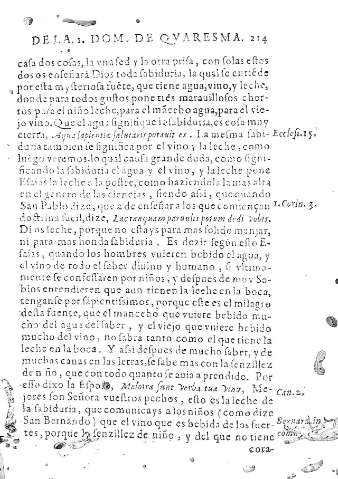 DE LA 1. DOM. DE QVARESMA. 214
casa dos cosas, la vna sed y la otra prisa, con solas estos
dos os enseñará Dios toda sabiduria, la qual se entiēde
por esta mysteriosa fuēte, que tiene agua, vino, y leche,
donde para todos gustos pone tres marauillosos chor-
ros para el niño leche, para el mācebo agua, para el vie-
jo vino. Que el agua signifique la sabiduria, es cosa muy
cierta, Aqua sapientiæ salutaris potauit es. La mesma sabi- Ecclesi.15.
duria tambien se significa por el vino y la leche, como
luego veremos. lo qual causa grande duda, como signi-
ficando la sabiduria el agua y el vino, y la leche pone
Esaias la leche a la postre, como haziendola la mas alta
en el genero de las ciencias, siendo assi, que quando
San Pablo dize, que a de enseñar a los que comiençan 1. Corin. 3.
doctrina facil, dize, Lac tanquam paruulis potum dedi vobis.
Di os leche, porque no estays para mas solido manjar,
ni para mas honda sabiduria. Es dezir segun esto E-
saias, quando los hombres vuieren bebido el agua, y
el vino de todo el saber diuino y humano, si vltima-
mente se confessaren por niños, y despues de muy Sa-
bios entendieren que aun tienen la leche en la boca,
tenganse por sapientissimos, porque este es el milagro
desta fuente, que el mancebo que vuiere bebido mu-
cho del agua del saber, y el viejo que vuiere bebido
mucho del vino, no sabra tanto como el que tiene la
leche en la boca. Y assi despues de mucho saber, y de
muchas canas en las letras, se sabe mas con la senzillez
de niño, que con todo quanto se auia aprendido. Por
esso dixo la Esposa, Meliora sunt vbera tua vino, Me- Can. 2.
jores son Señora vuestros pechos, esto es la leche de
la sabiduria, que comunicays a los niños (como dize Bernard. in
San Bernardo) que el vino que es bebida de los fuer-
tes, porque la senzillez de niño, y del que no tiene
cora-